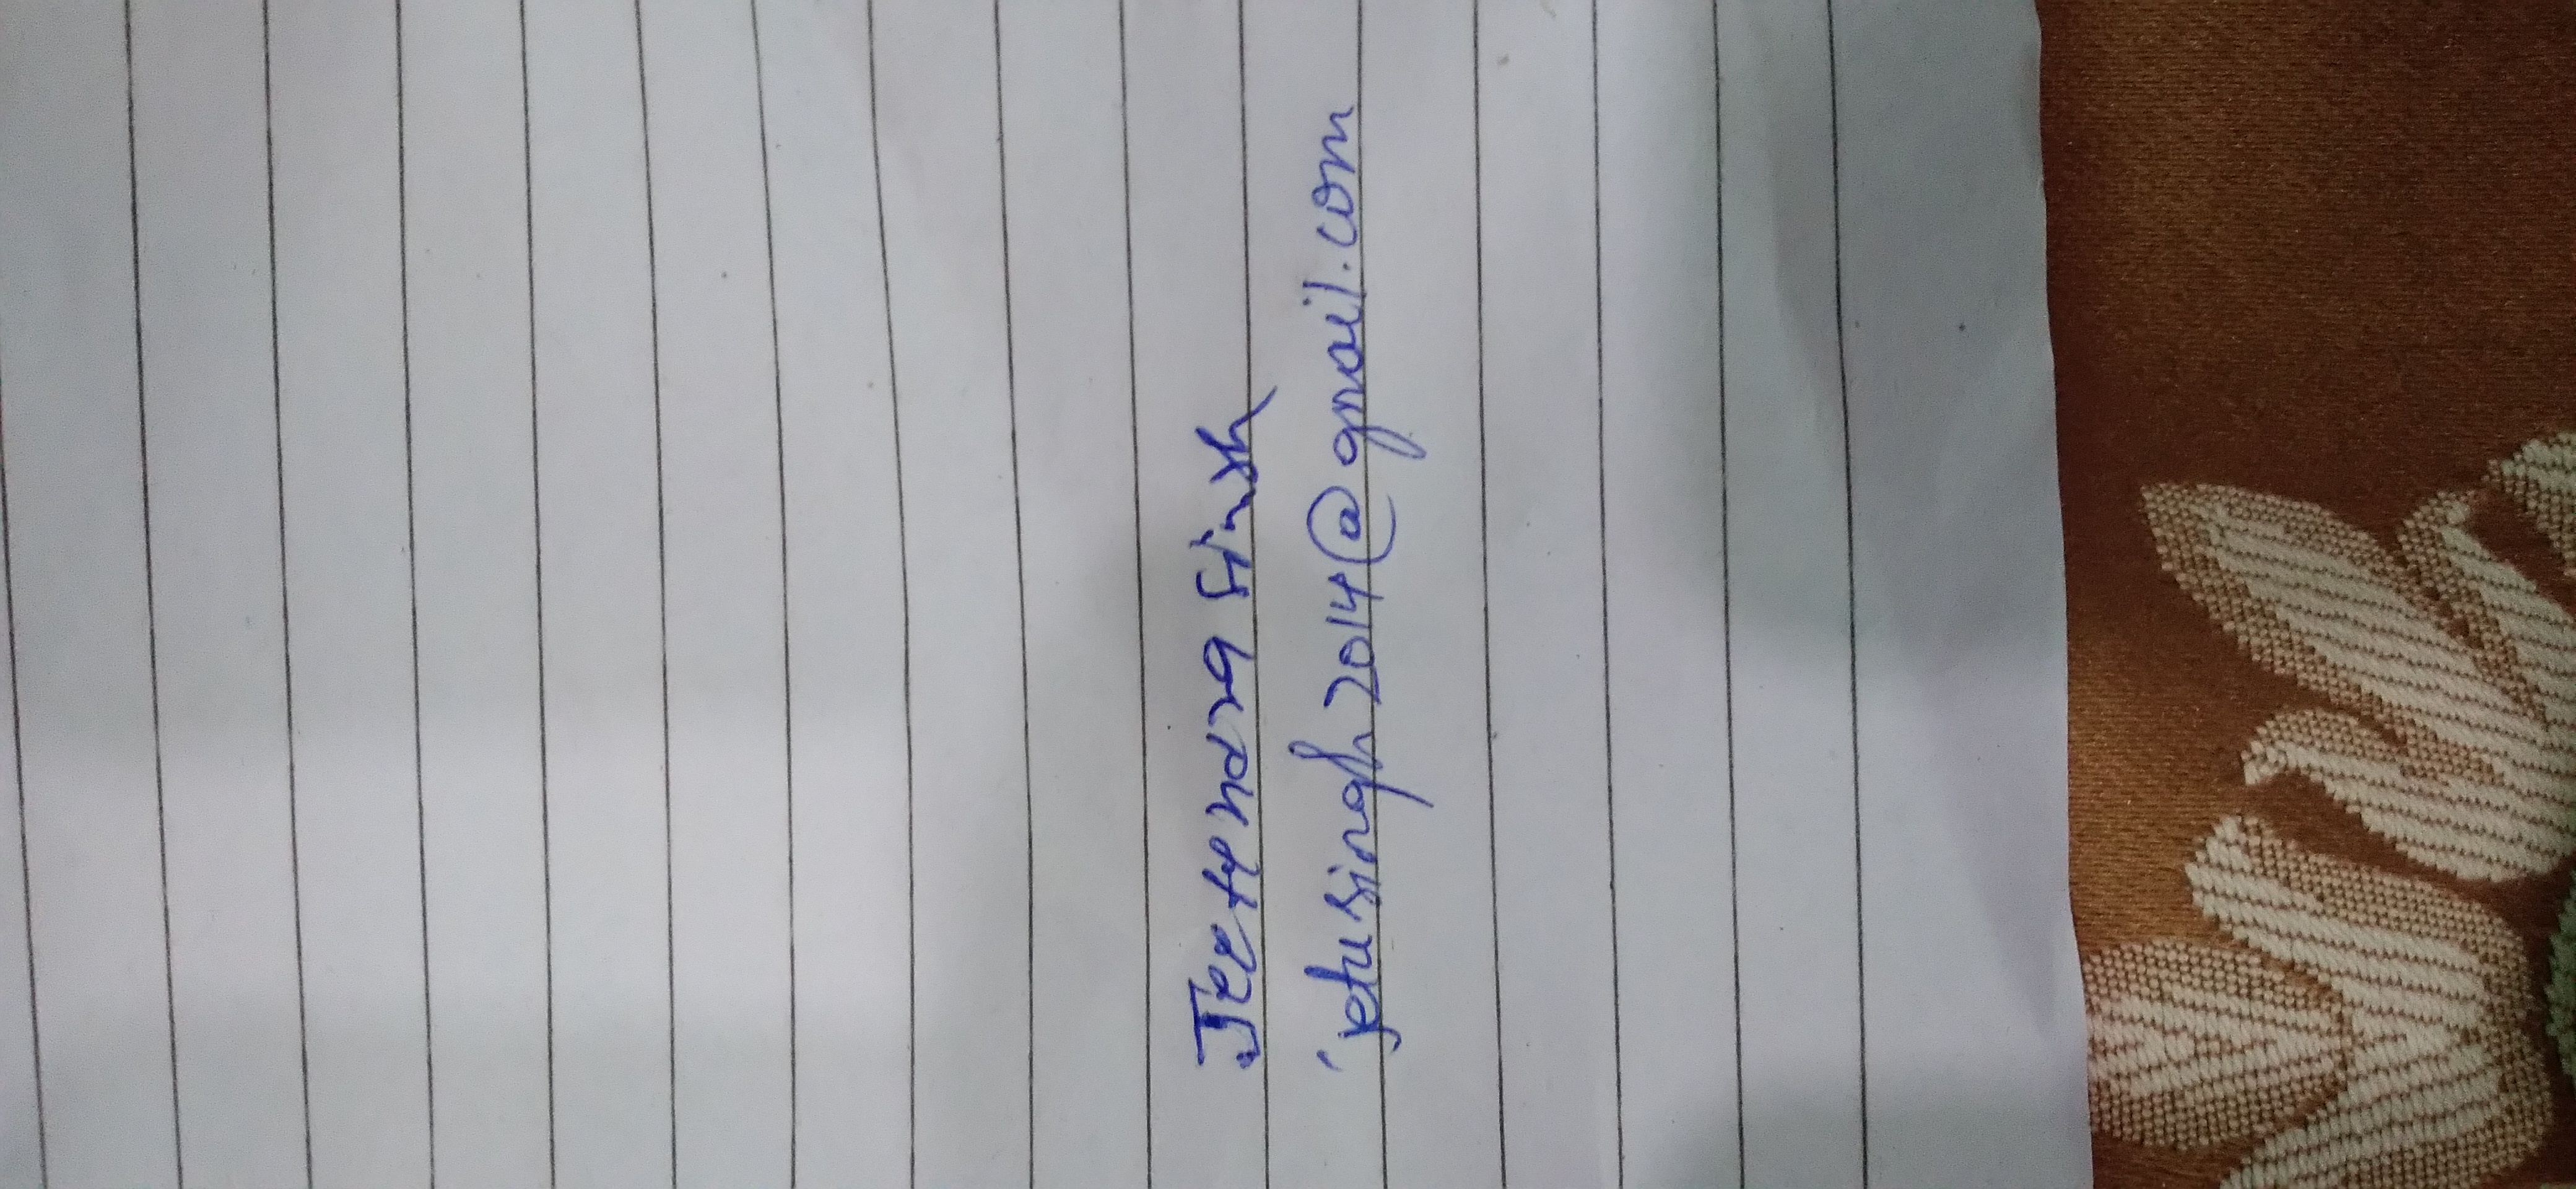 Jeetendra Singh
jetusingh2014@gmail.com